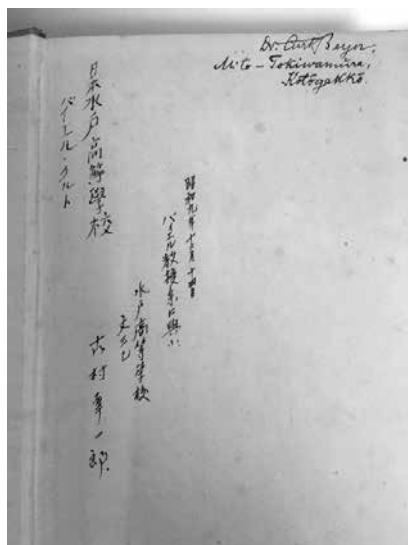 Dr. Curt Beyer,
Mito - Tokiwamura,
Kōtōgakkō.
昭和九年十二月十四日
バイエル教授
水戸高等学校
村 一郎
日本水戸高等學校
バイエル・クルト